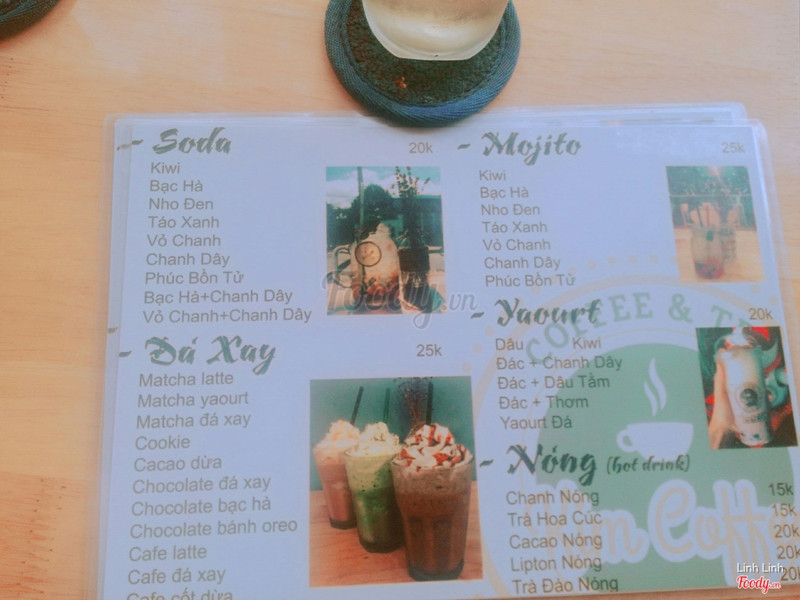 - Soda 20k
Kiwi
Bạc Hà
Nho Đen
Táo Xanh
Vỏ Chanh
Chanh Dây
Phúc Bồn Tử
Bạc Hà+Chanh Dây
Vỏ Chanh+Chanh Dây
- Đá Xay 25k
Matcha latte
Matcha yaourt
Matcha đá xay
Cookie
Cacao dừa
Chocolate đá xay
Chocolate bạc hà
Chocolate bánh oreo
Cafe latte
Cafe đá xay
Cafe cốt dừa
- Mojito 25k
Kiwi
Bạc Hà
Nho Đen
Táo Xanh
Vỏ Chanh
Chanh Dây
Phúc Bồn Tử
- Yaourt 20k
Dâu Kiwi
Đác + Chanh Dây
Đác + Dâu Tằm
Đác + Thơm
Yaourt Đá
- Nóng (hot drink)
Chanh Nóng 15k
Trà Hoa Cúc 15k
Cacao Nóng 20k
Lipton Nóng 20k
Trà Đào Nóng 20k
COFFEE &
Foody.vn
Linh Linh
Foody.vn